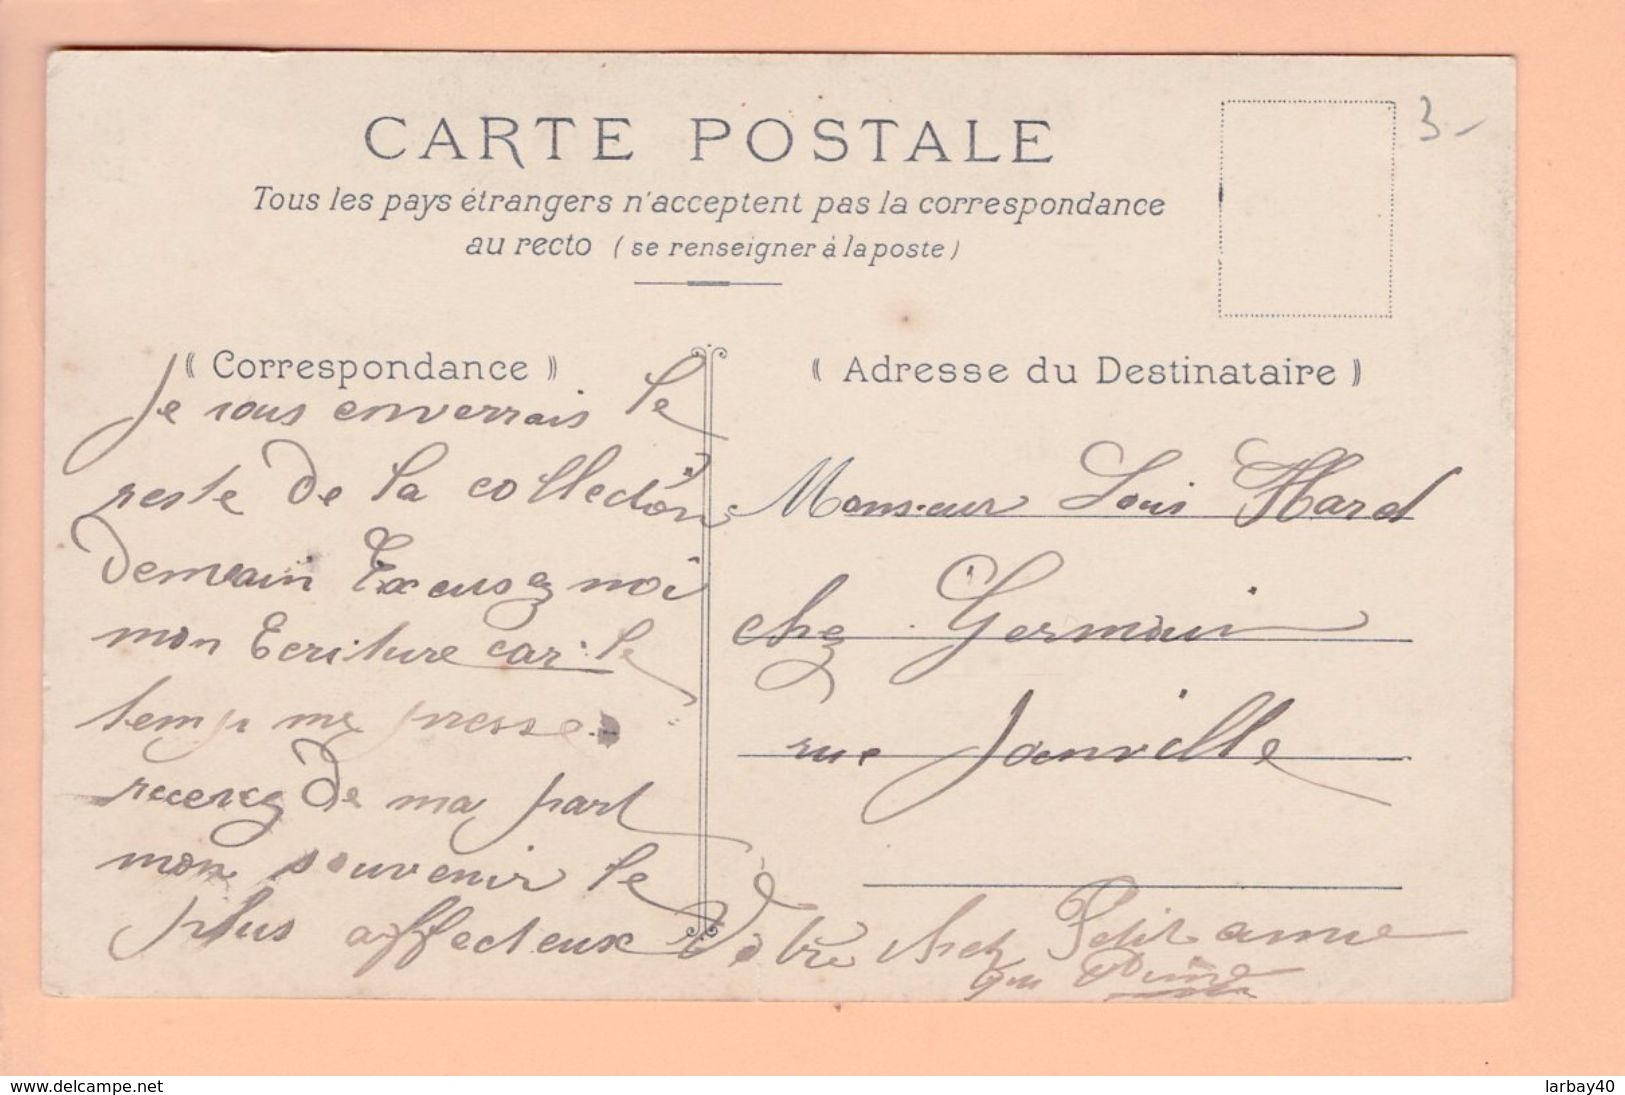 CARTE POSTALE
Tous les pays étrangers n'acceptent pas la correspondance
au recto (se renseigner à la poste)
3-
(( Correspondance ))
Je vous enverrais le
reste de la collection
demain Excusez moi
mon Ecriture car le
temp me presse
recevez de ma part
mon souvenir le
plus affecteux Vôtre cher Petit amie
qui
(( Adresse du Destinataire ))
Monsieur Louis
chez Germain
rue Joinville
www.delcampe.net
larbay40